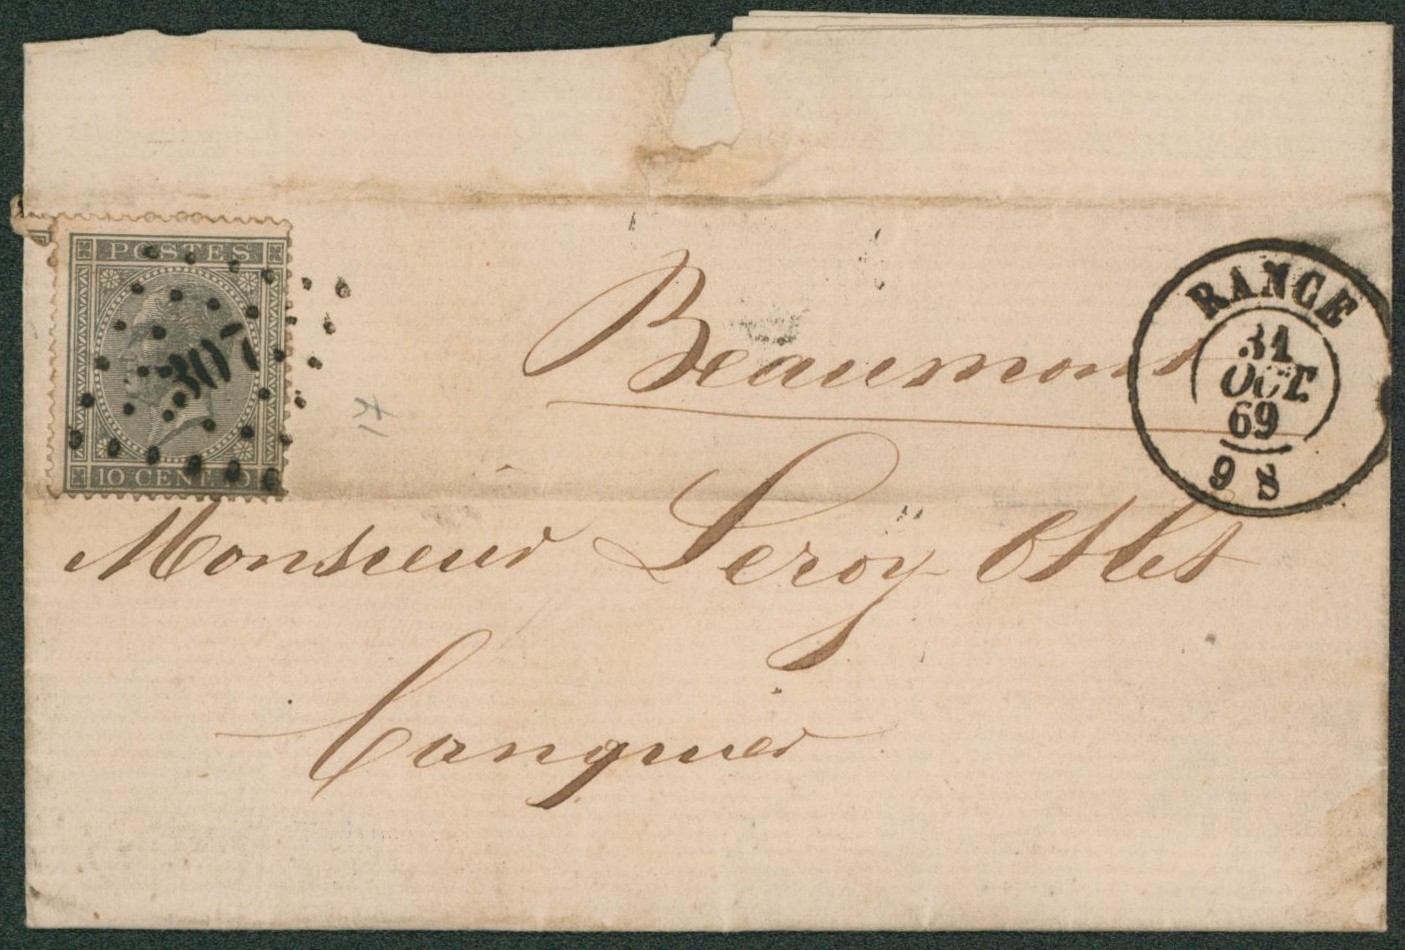 POSTES
307
10 CENT. 10
RANCE
31
OCT.
69
9 S
Beaumont
Monsieur Leroy Ostlet
banquier